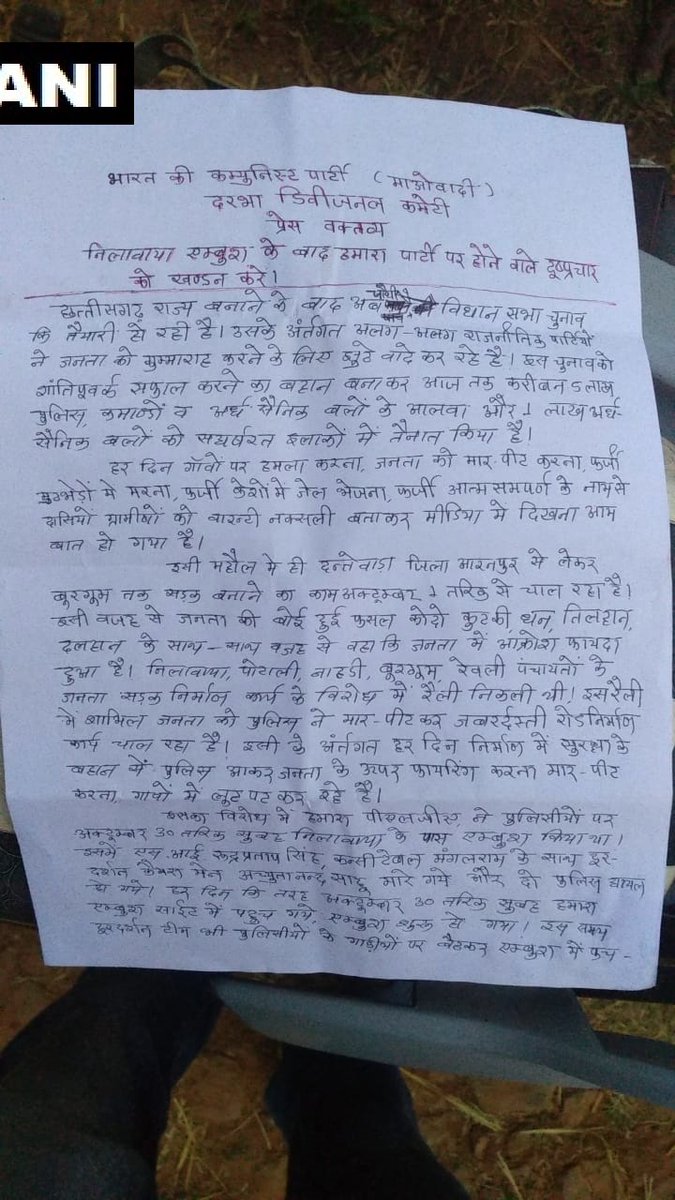 ANI
भारत की कम्युनिस्ट पार्टी (माओवादी)
दरभा डिवीजनल कमेटी
प्रेस वक्तव्य
निलावाया एम्बुश के बाद हमारा पार्टी पर होने वाले दूष्प्रचार
को खण्डन करे!
छत्तीसगढ़ राज्य बनाने के बाद अब चौथी विधान सभा चुनाव
कि तैयारी हो रही है। उसके अंर्तगत अलग-अलग राजनीतिक पार्टियों
ने जनता को गुम्माराह करने के लिए झुटे वादे कर रहे है। इस चुनाव को
शांतिपूवर्क सफाल करने का बहान बनाकर आज तक करीबन 5 लाख
पुलिस, कमाण्डों व अर्ध सैनिक बलों के आलवा और 1 लाख अर्ध-
सैनिक बलों को सघर्षरत इलाकों में तैनात किया है।
हर दिन गाँवों पर हमला करना, जनता को मार-पीट करना, फर्जी
मुठभेड़ों मे मरना, फर्जी केशों में जेल भेजना, फर्जी आत्मसमपर्ण के नाम से
ग्रामीणों को वारन्टी नक्सली बताकर मीडिया में दिखना आम
बात हो गया है।
इसी महौल मे ही दन्तेवाड़ा जिला मारनपुर से लेकर
बूरगूम तक सड़क बनाने का काम अक्टूम्बर 1 तरिक से चाल रहा है।
इसी वजह से जनता की बोई हुई फसल कोदो कुटकी, धन, तिलहान,
दलहान के साथ-साथ वजह से वहा कि जनता में आक्रोश फायदा
हुआ है। निलावाया, पोटाली, नाहडी, बूरगूम, रेवली पंचायतों के
जनता सड़क निर्माण कार्य के विरोध में रैली निकली थी! इस रैली
मे शामिल जनता को पुलिस ने मार-पीट कर जबरर्दस्ती रोड निर्माण
कार्य चाल रहा है। इसी के अंर्तगत हर दिन निर्माण में सुरक्षा के
बहान से पुलिस आकर जनता के ऊपर फायरिंग करना मार-पीट
करना, गावों में लूट पट कर रहे है।
इसका विरोध में हमारा पीएलजीए ने पुलिसीयों पर
अक्टूम्बर 30 तरिक सुबह निलावाया के पास एम्बुश किया था।
इसमें एस.आई रूद्रप्रताप सिंह, कन्सीटेबाल मंगलराम के साथ दूर-
दर्शन कैमरा मेन अच्युतानन्द साहू मारे गये और दो पुलिस घायल
हो गये। हर दिन कि तरह अक्टूम्बर 30 तरिक सुबह हमारा
एम्बुश साईट में पहुच गये, एम्बुश शुरू हो गया। इस समय
दूरदर्शन टीम भी पुलिसीयों के गाड़ीयों पर बैठकर एम्बुश में फस-